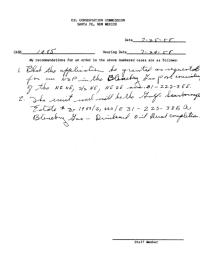 OIL CONSERVATION COMMISSION
SANTA FE, NEW MEXICO
Date 7-25-55
CASE 1055 Hearing Date
My recommendations for an order in the above numbered cases are as follows:
1. That the application be granted as requested
for an NSP in the Blinebry Gas pool consisting
of the NE NE, S/2 NE, 31-22S-38E.
2. The unit well will be the Gulf Scarborough
Estate # 31-22S-38E a
Blinebry Gas - Drinkard Oil Dual completion.
Staff Member